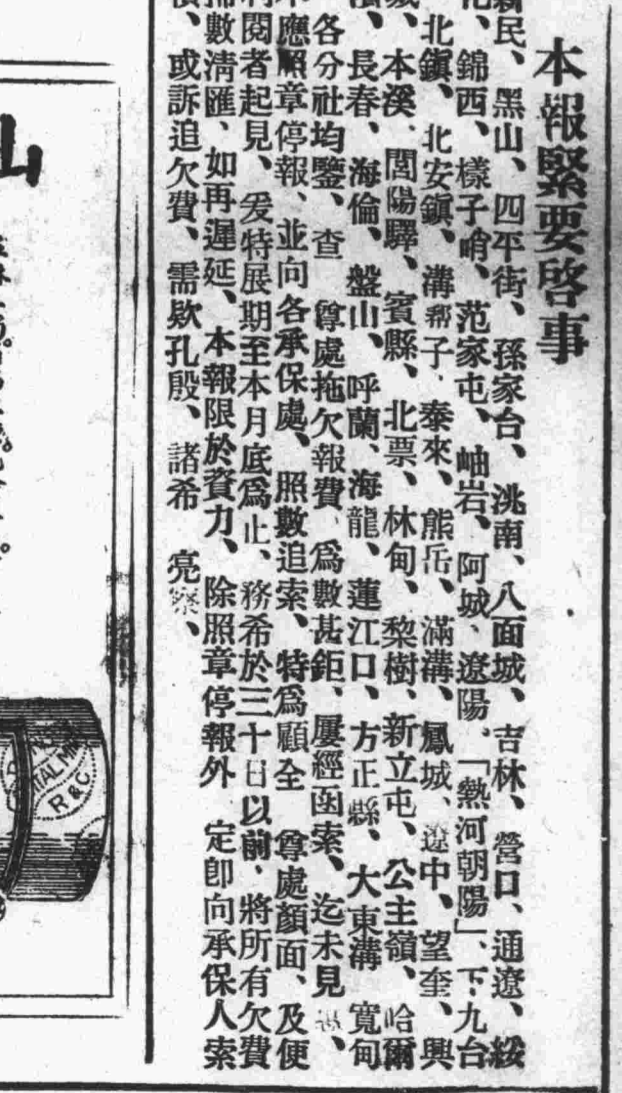 本報緊要啓事
新民、黑山、四平街、孫家台、洮南、八面城、吉林、營口、通遼、綏
化、錦西、樣子哨、范家屯、岫岩、阿城、遼陽、「熱河朝陽」、下九台
北鎭、北安鎭、溝幇子、泰來、熊岳、滿溝、鳳城、遼中、望奎、興
城、本溪、閭陽驛、賓縣、北票、林甸、黎樹、新立屯、公主嶺、哈爾
濱、長春、海倫、盤山、呼蘭、海龍、蓮江口、方正縣、大東溝 寬甸
各分社均鑒、查 尊處拖欠報費、爲數甚鉅、屢經函索、迄未見
應照章停報、並向各承保處、照數追索、特爲顧全 尊處顏面、及便
閱者起見、爰特展期至本月底爲止、務希於三十日以前、將所有欠費
數清匯、如再遲延、本報限於資力、除照章停報外 定卽向承保人索
、或訴追欠費、需欵孔殷、諸希 亮察、
山
R & C